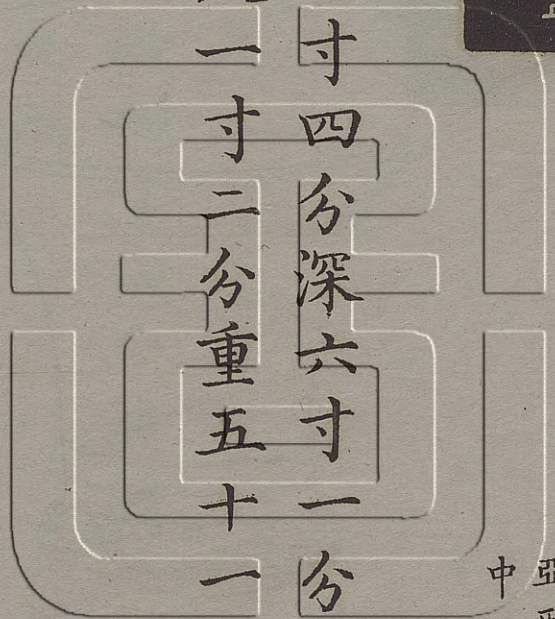 寸四分深六寸一分
一寸二分重五十一
亞
中